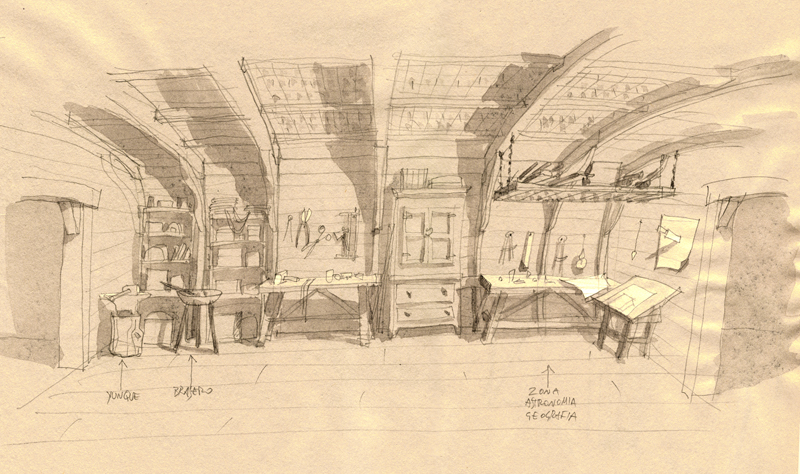 YUNQUE
BRASERO
ZONA
ASTRONOMIA
GEOGRAFIA